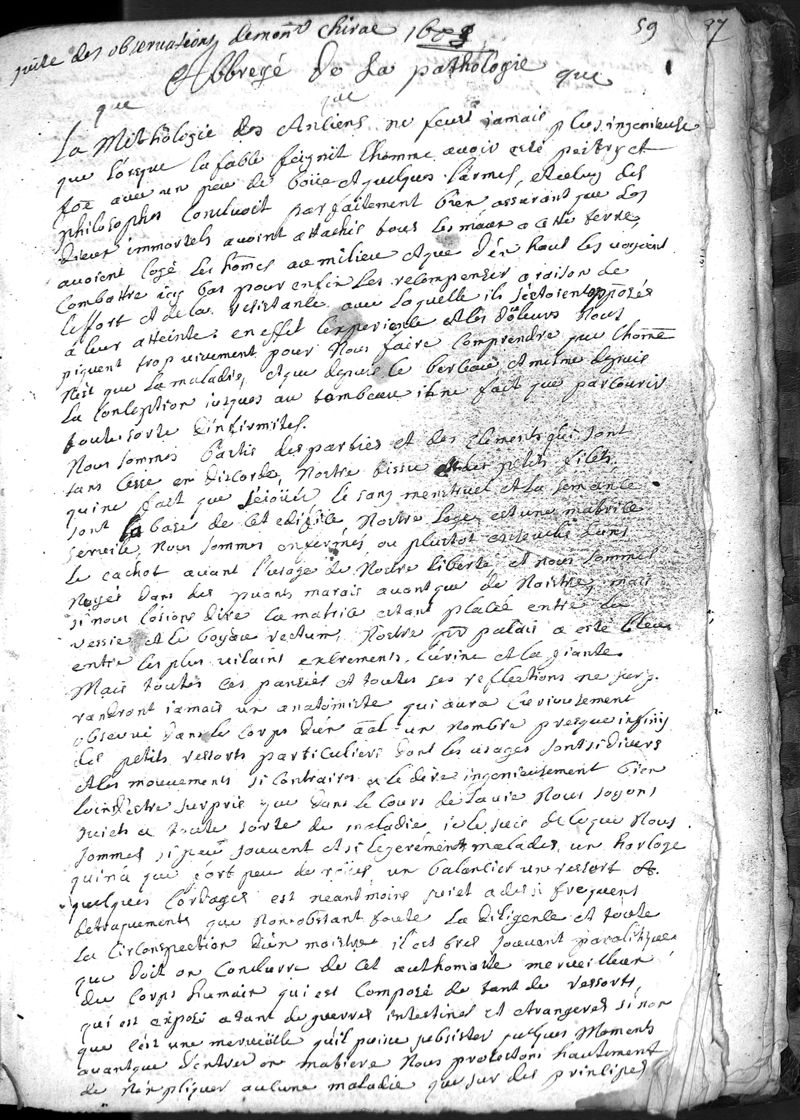 suite des observations de mon^r chirac 1683
59 37
Abbregé de La pathologie que
que que
La Mithologie des Anciens ne feut jamais plus ingenieuse
que Lorsque la fable feignit L'homme avoir esté peitry et
fot avec un peu de boüe et quelques Larmes, et celuy des
philosophes Concluoit parfaitement bien assurant que Les
dieux immortels avoint attachés tous Les maux a cette terre,
avoient logé Les hom̃es au milieu et que d'en haut Les voyoient
Combattre icy bas pour enfin Les recompenser a raison de
Leffort et de la resistance avec Laquelle ils s'estoient opposés
a leur atteinte: en effet L'experience et les douleurs Nous
piquent trop vivement pour Nous faire Comprendre que L'hom̃e
N'est que La maladie, et que depuis le berceau et mesme depuis
La Conception jusques au tombeau il ne fait que parcourir
toute sorte d'infirmites.
Nous sommes batis des parties et des elements qui sont
sans Cesse en discorde, Nostre tissu des petits filets
qui ne fait que Le sang menstruel et La semence
sont la base de Cet edifice, Nostre Loge est une matrice
servile, Nous sommes enfermés ou plustot dans
Le cachot avant L'usage de Nostre Liberté et nous sommes
Noyés dans des puants marais avant que de Naistre, mais
si nous L'osions dire La matrice estant placée entre La
vessie et Le boyau rectum, Nostre p^{r} palais a esté
entre Les plus vilains extrements, L'urine et La fiante
Mais toutes Ces pansées et toutes Ces reflections ne surp-
randront jamais un anatomiste qui aura Curieusement
observé dans Le Corps d'un a͠al un Nombre presque infiny
des petits ressorts particuliers dont Les usages sont si divers
et Les mouvements si Contraires a le dire ingenieusement bien
Loin d'estre surpris que dans le Cours de La vie Nous soyons
sujets a toute sorte de maladie, je le suis de Ce que Nous
sommes si peu souvent et si Legerement malades, un horloge
qui n'a que fort peu de un balancier un ressort et
quelques Cordages est neantmoins sujet a de si frequens
detraquements que nonobstant toute La diligence et toute
La Circonspection d'un maistre il est bres souvant paralitique
que doit on Conclurre de Cet authomate merveilleux
du Corps humain qui est Composé de tant de ressorts,
qui est exposé a tant de guerres intestines et etrangeres si non
que C'est une merveille qu'il puisse subsister quelques Moments
avant que d'entrer en matiere Nous protestons hautement
de N'expliquer aucune maladie que sur des principes